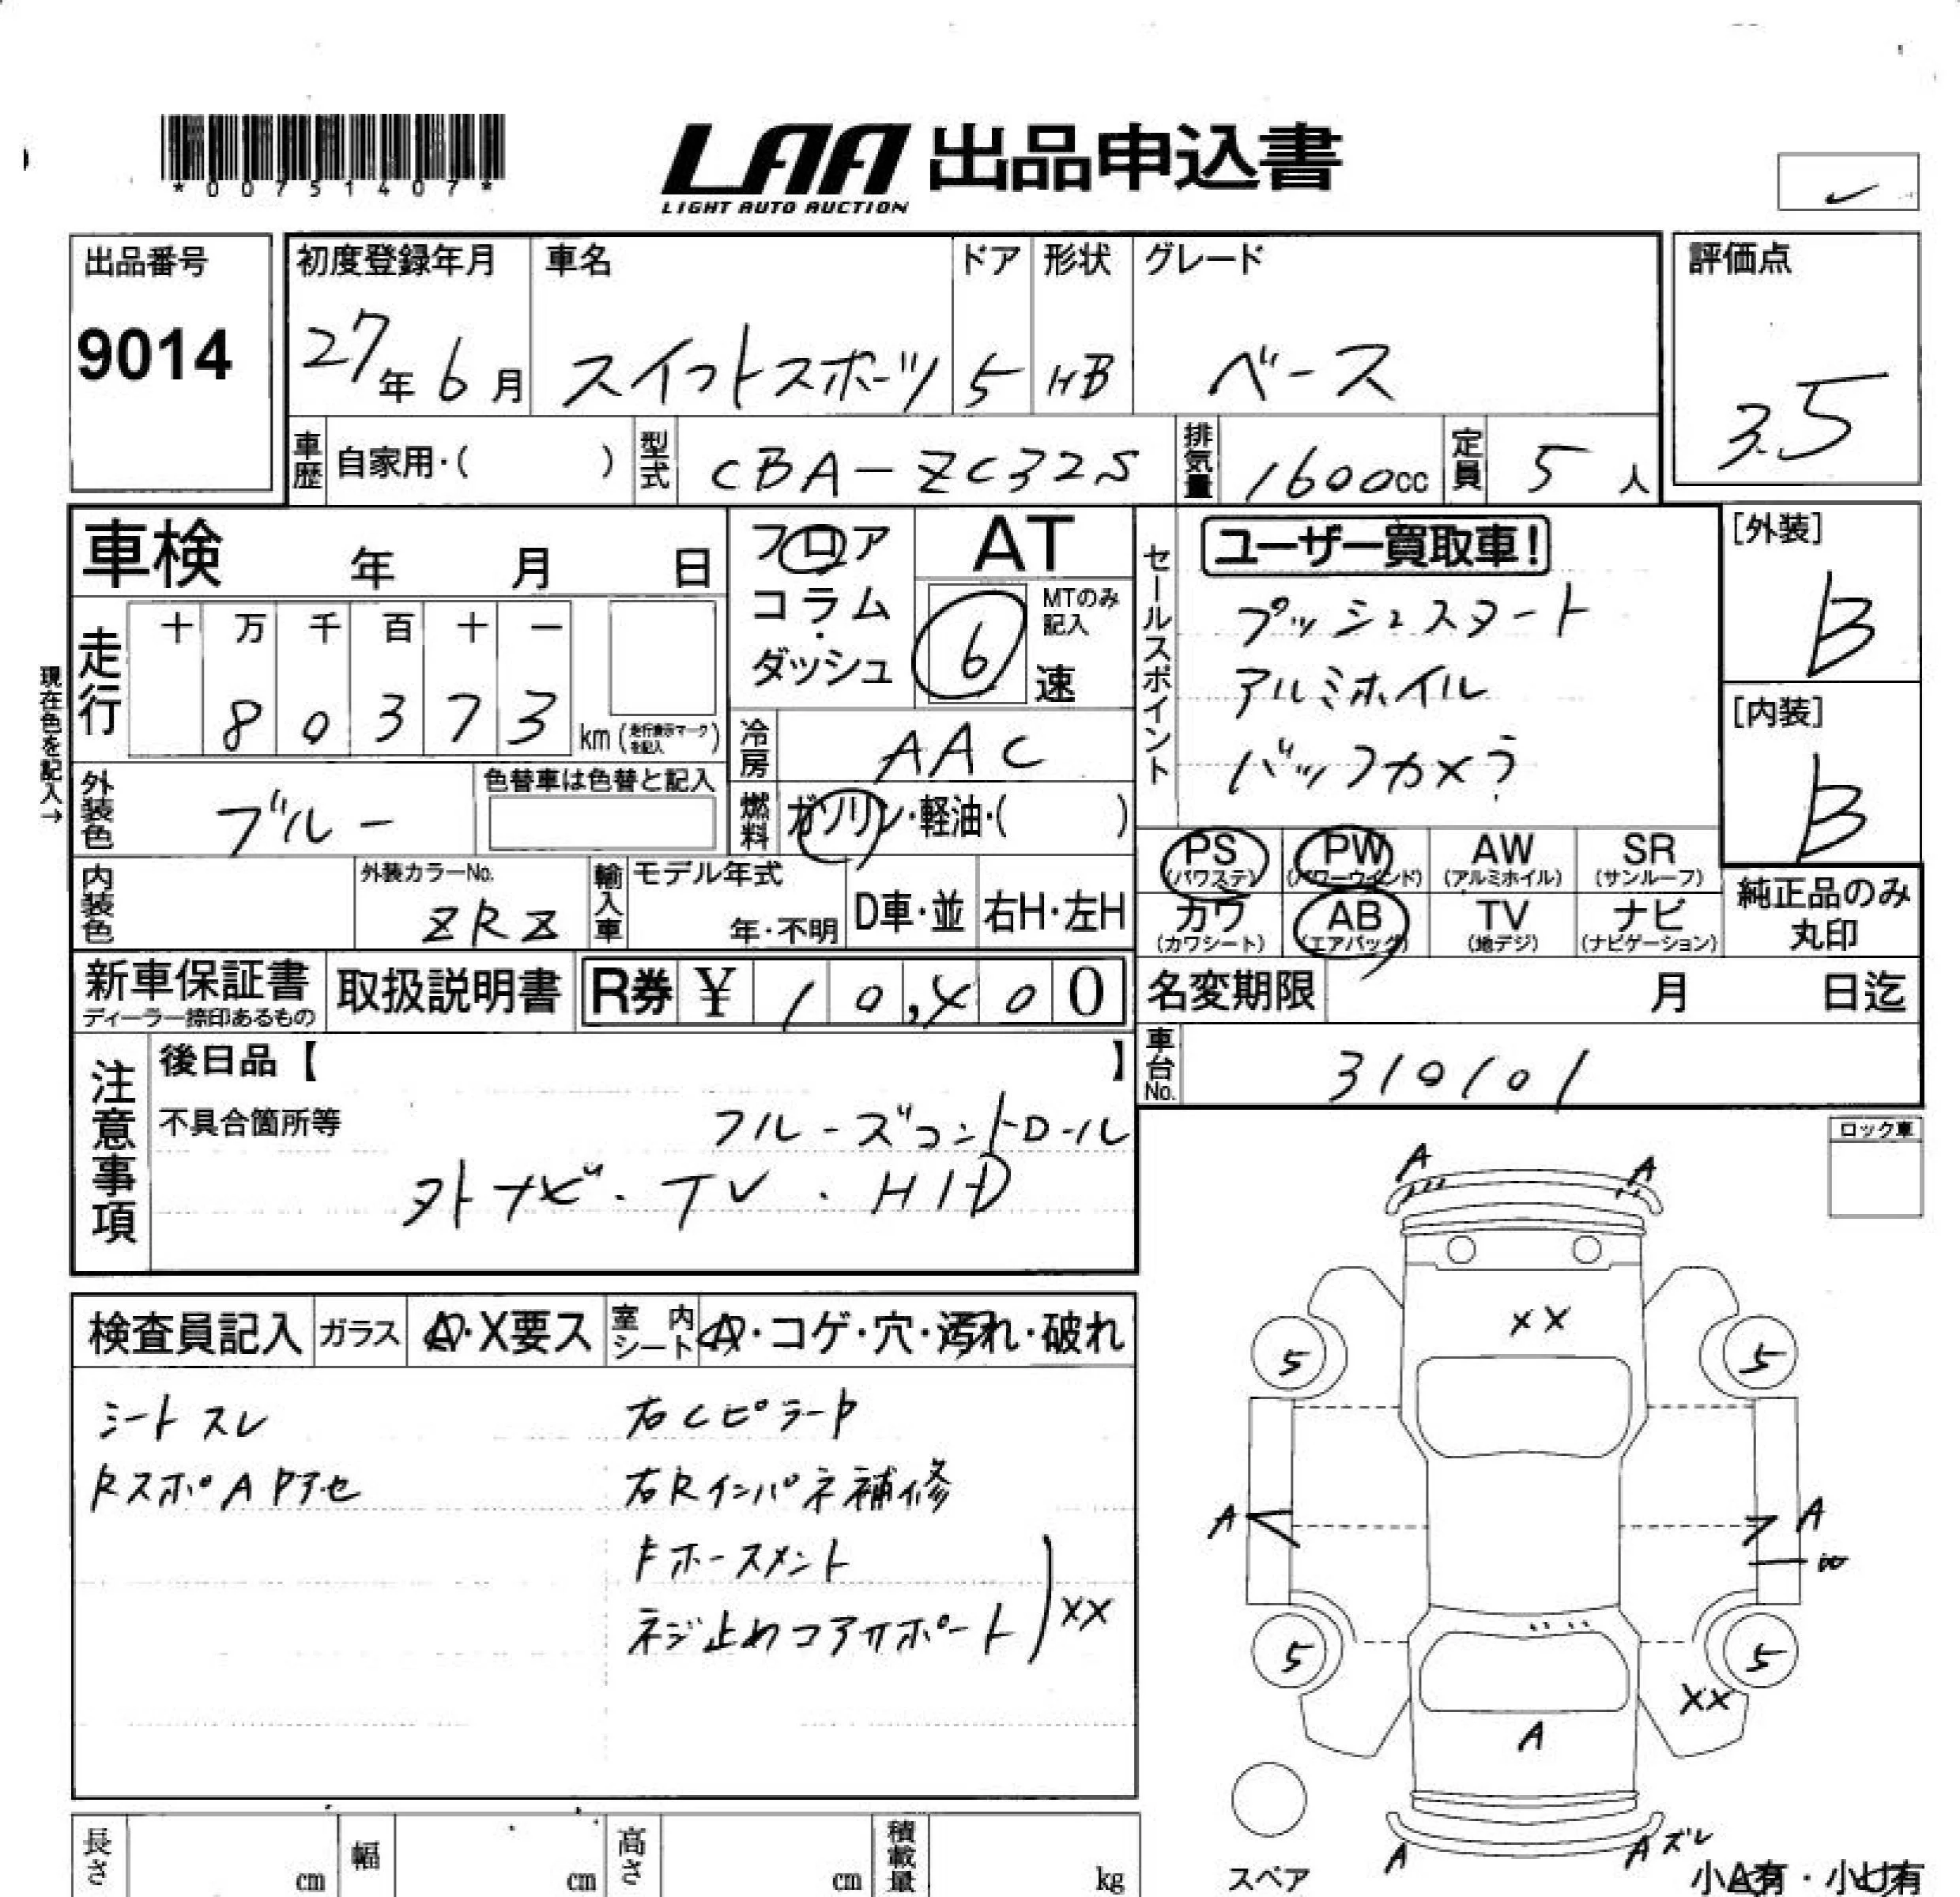 *00751407*
LAA 出品申込書
LIGHT AUTO AUCTION
出品番号
9014
初度登録年月
27年6月
車名
スイフトスポーツ
ドア
5
形状
HB
グレード
ベース
評価点
3.5
車歴
自家用・( )
型式
CBA-ZC32S
排気量
1600cc
定員
5人
車検 年 月 日
フロア
コラム
・
ダッシュ
AT
MTのみ
記入
6速
走行
十 万 千 百 十 一
8 0 3 7 3
km (走行表示マークを記入)
現在色を記入→
外装色
ブルー
色替車は色替と記入
冷房
AAC
燃料
ガソリン・軽油・( )
セールスポイント
ユーザー買取車!
プッシュスタート
アルミホイル
バックカメラ
[外装]
B
[内装]
B
PS
(パワステ)
PW
(パワーウインド)
AW
(アルミホイル)
SR
(サンルーフ)
カワ
(カワシート)
AB
(エアバッグ)
TV
(地デジ)
ナビ
(ナビゲーション)
純正品のみ
丸印
内装色
外装カラーNo.
ZRZ
輸入車
モデル年式
年・不明
D車・並
右H・左H
新車保証書
ディーラー捺印あるもの
取扱説明書
R券 ¥ 10,400
名変期限 月 日迄
車台No.
310101
注意事項
後日品【 】
不具合箇所等
クルーズコントロール
外ナビ・TV・HID
検査員記入
ガラス
A・X要ス
室内シート
A・コゲ・穴・汚れ・破れ
シートスレ
RスポA Pアセ
右CピラーP
右Rインパネ補修
Fホースメント
ネジ止めコアサポート
XX
ロック車
A
A
XX
5
5
A
A
5
5
XX
A
A
Aズレ
スペア
小A有・小U有
長さ
cm
幅
cm
高さ
cm
積載量
kg